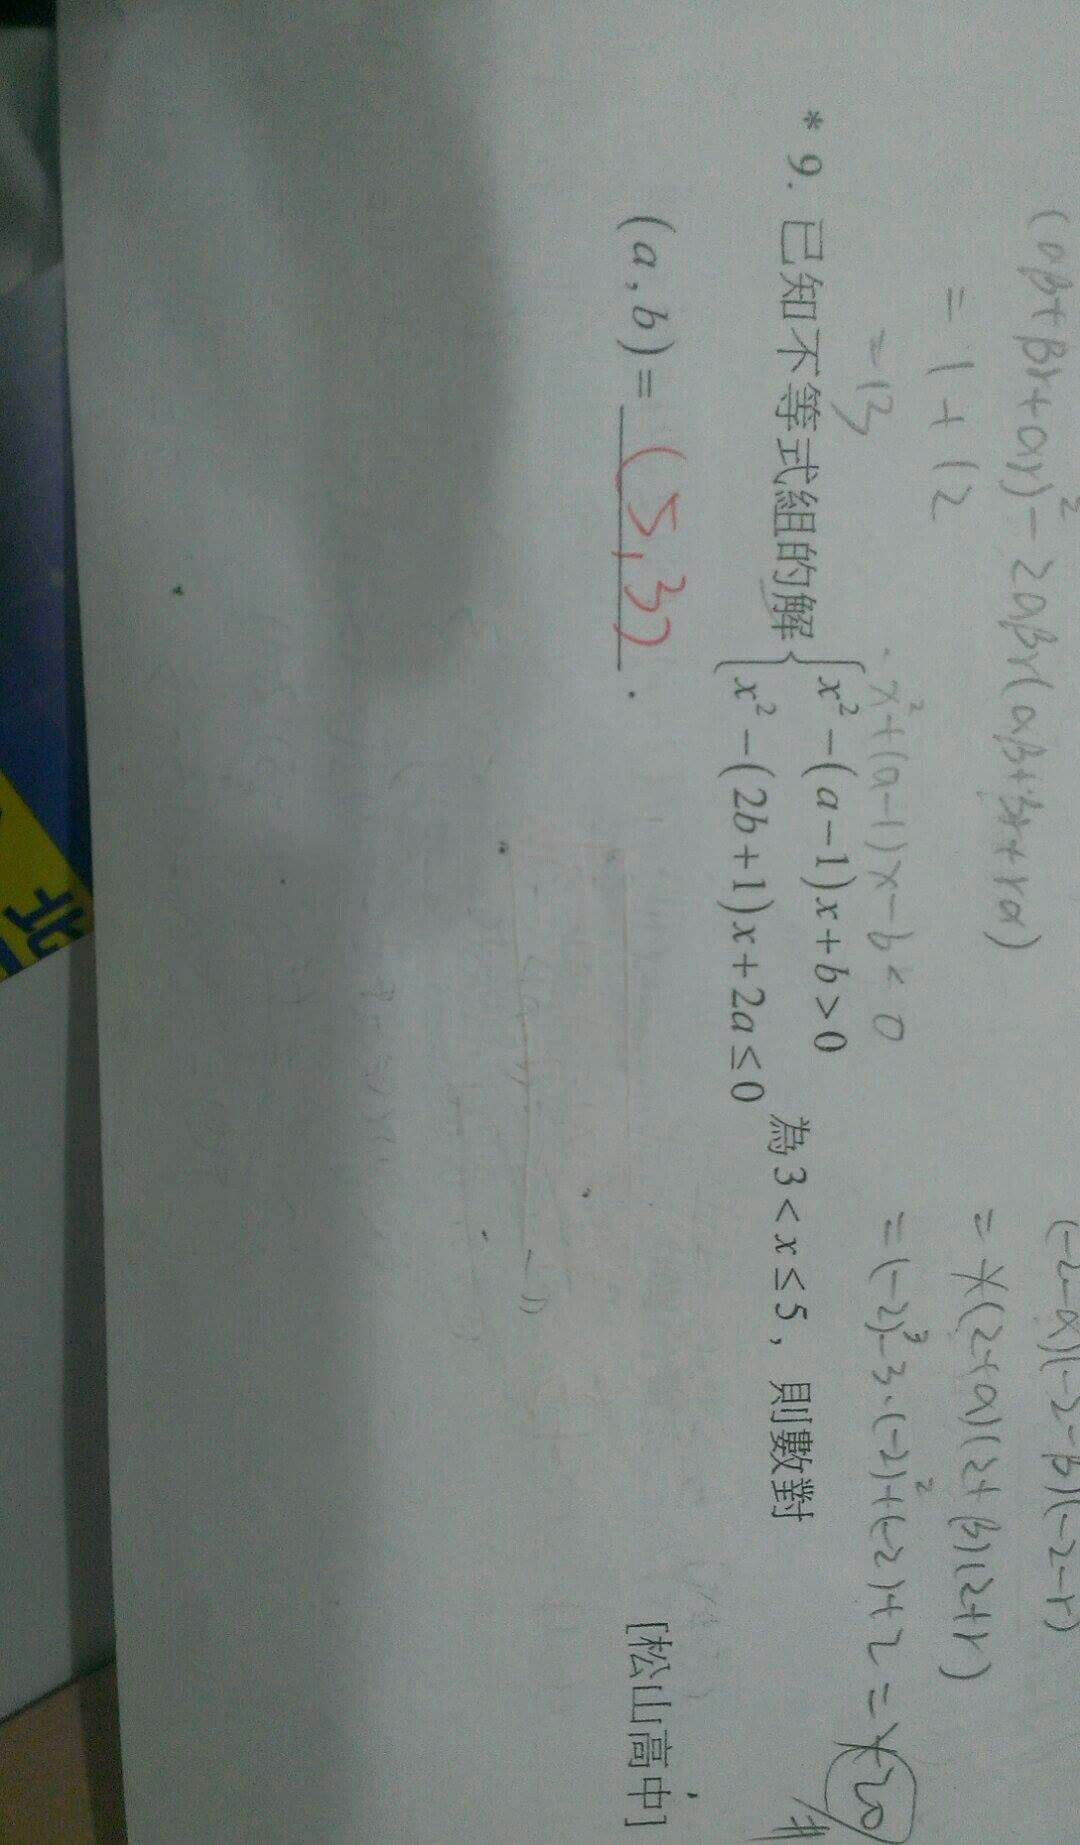 (αβ+βγ+αγ)²-2αβγ(αβ+βγ+γα)
=1+12
=13
(-2-α)(-2-β)(-2-γ)
=(2+α)(2+β)(2+γ)
=(-2)³-3·(-2)²+(-2)+2=
20
x²+(a-1)x-b<0
*9. 已知不等式組的解{x²-(a-1)x+b>0
x²-(2b+1)x+2a≤0 為3<x≤5,則數對
(a,b)=(5,3).
[松山高中]
北